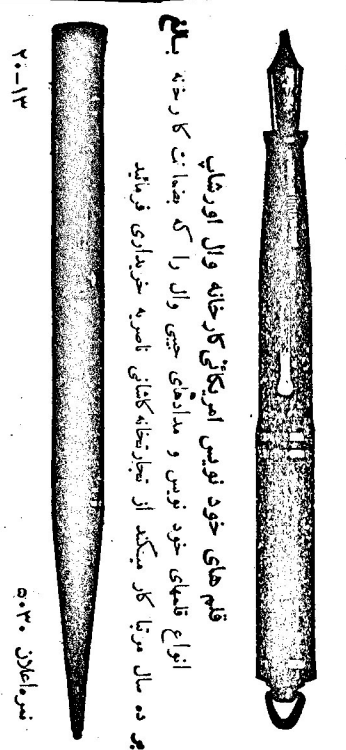 قلم های خود نویس امریکائی کارخانه وال اورشاپ
انواع قلمهای خود نویس و مدادهای جیبی وال را که بضمانت کارخانه بالغ
بر ده سال مرتبا کار میکند از تجارتخانه کاشانی ناصریه خریداری فرمائید
نمره اعلان ۵۰۳۰ ۲۰-۱۳